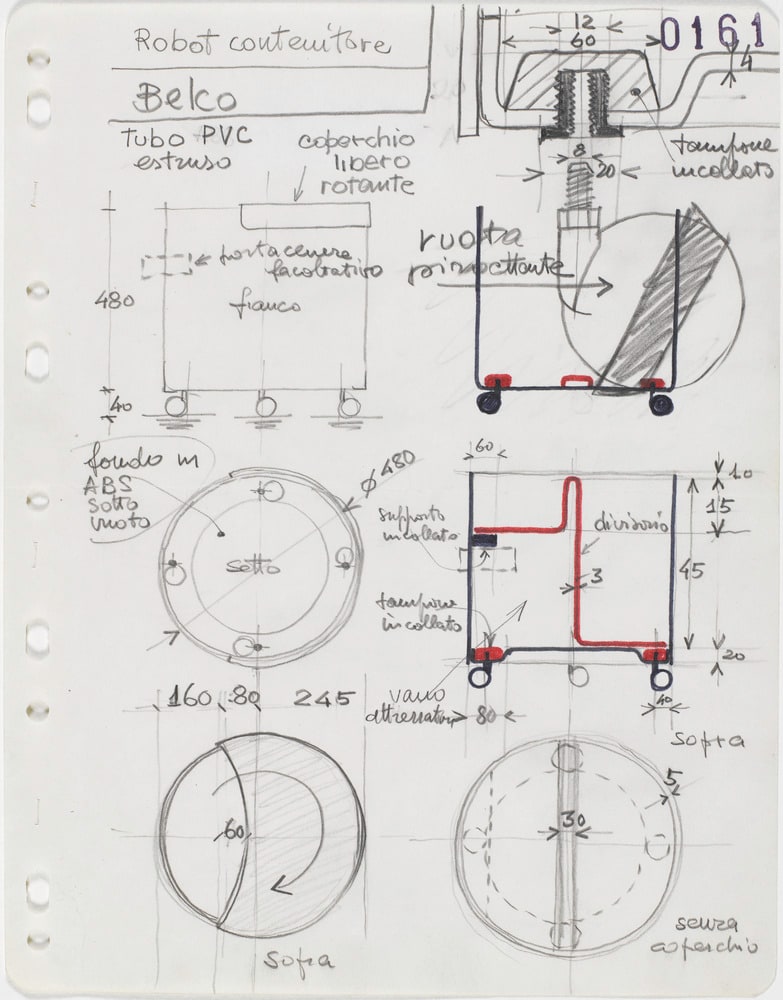 Robot contenitore
Belco
0161
12
60
4
8
20
tampone
incollato
Tubo PVC
estruso
coperchio
libero
rotante
portacenere
facoltativo
fianco
480
40
ruota
piroettante
fondo in
ABS
sotto
vuoto
ϕ 480
sotto
60
supporto
incollato
divisorio
3
10
15
45
20
tampone
incollato
vano
attrezzature
80
40
160 80 245
60
Sopra
Sopra
5
30
senza
coperchio